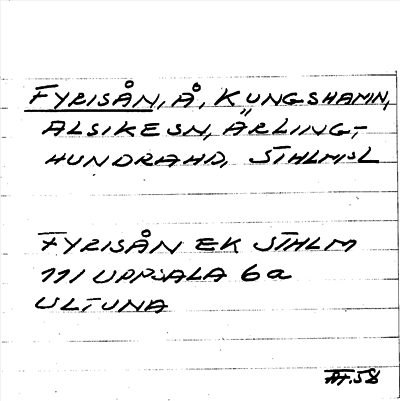 FYRISÅN, Å, KUNGSHAMN,
ALSIKE SN, ÄRLING-
HUNDRA HD, STHLMSL
FYRISÅN EK STHLM
111 UPPSALA 6a
ULTUNA